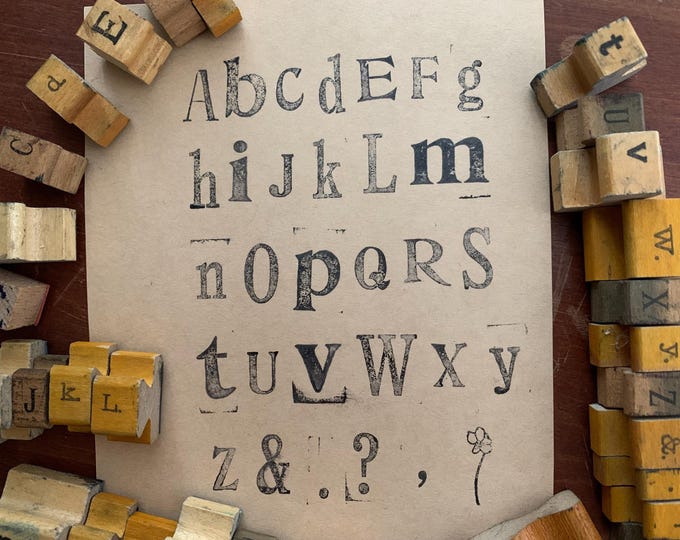 AbcdEFg
hiJkLm
nOpQRS
tUvWXy
z&.?,
E
d
C
J
K
L.
t
U
v
W.
X
y.
Z
&.